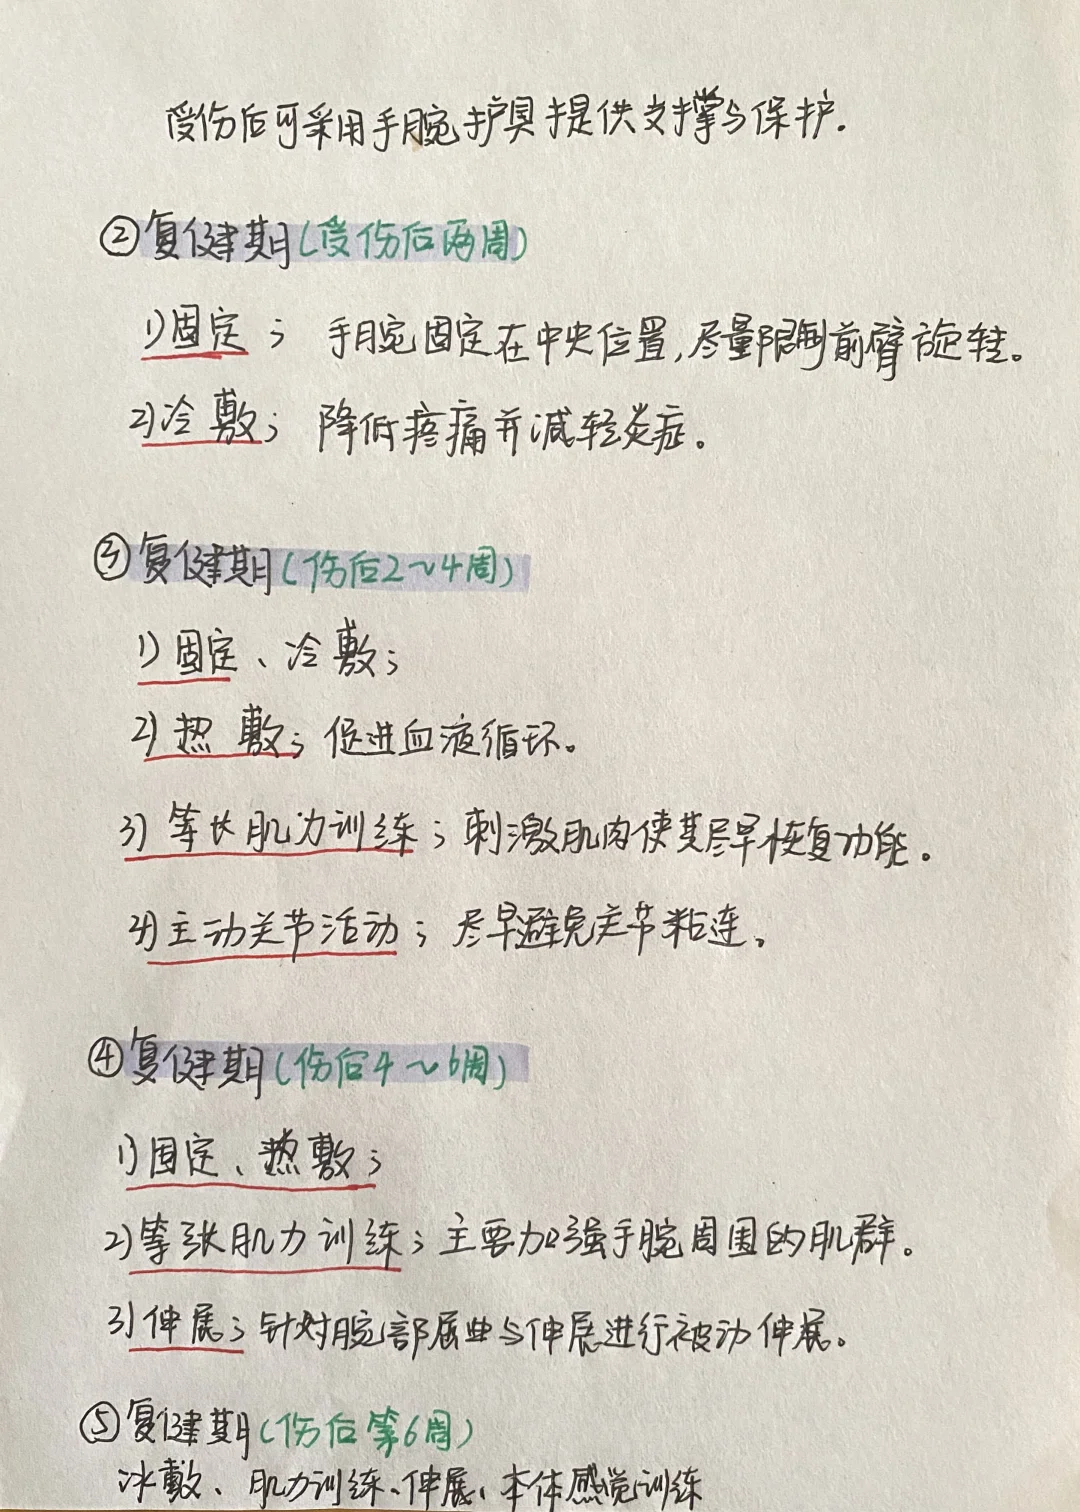 受伤后可采用手腕护具提供支撑与保护.
②复健期(受伤后两周)
1)固定；手腕固定在中央位置,尽量限制前臂旋转。
2)冷敷；降低疼痛并减轻炎症。
③复健期(伤后2~4周)
1)固定、冷敷；
2)热敷；促进血液循环。
3)等长肌力训练；刺激肌肉使其尽早恢复功能。
4)主动关节活动；尽早避免关节粘连。
④复健期(伤后4~6周)
1)固定、热敷；
2)等张肌力训练；主要加强手腕周围的肌群。
3)伸展；针对腕部屈曲与伸展进行被动伸展。
⑤复健期(伤后第6周)
冰敷、肌力训练、伸展、本体感觉训练